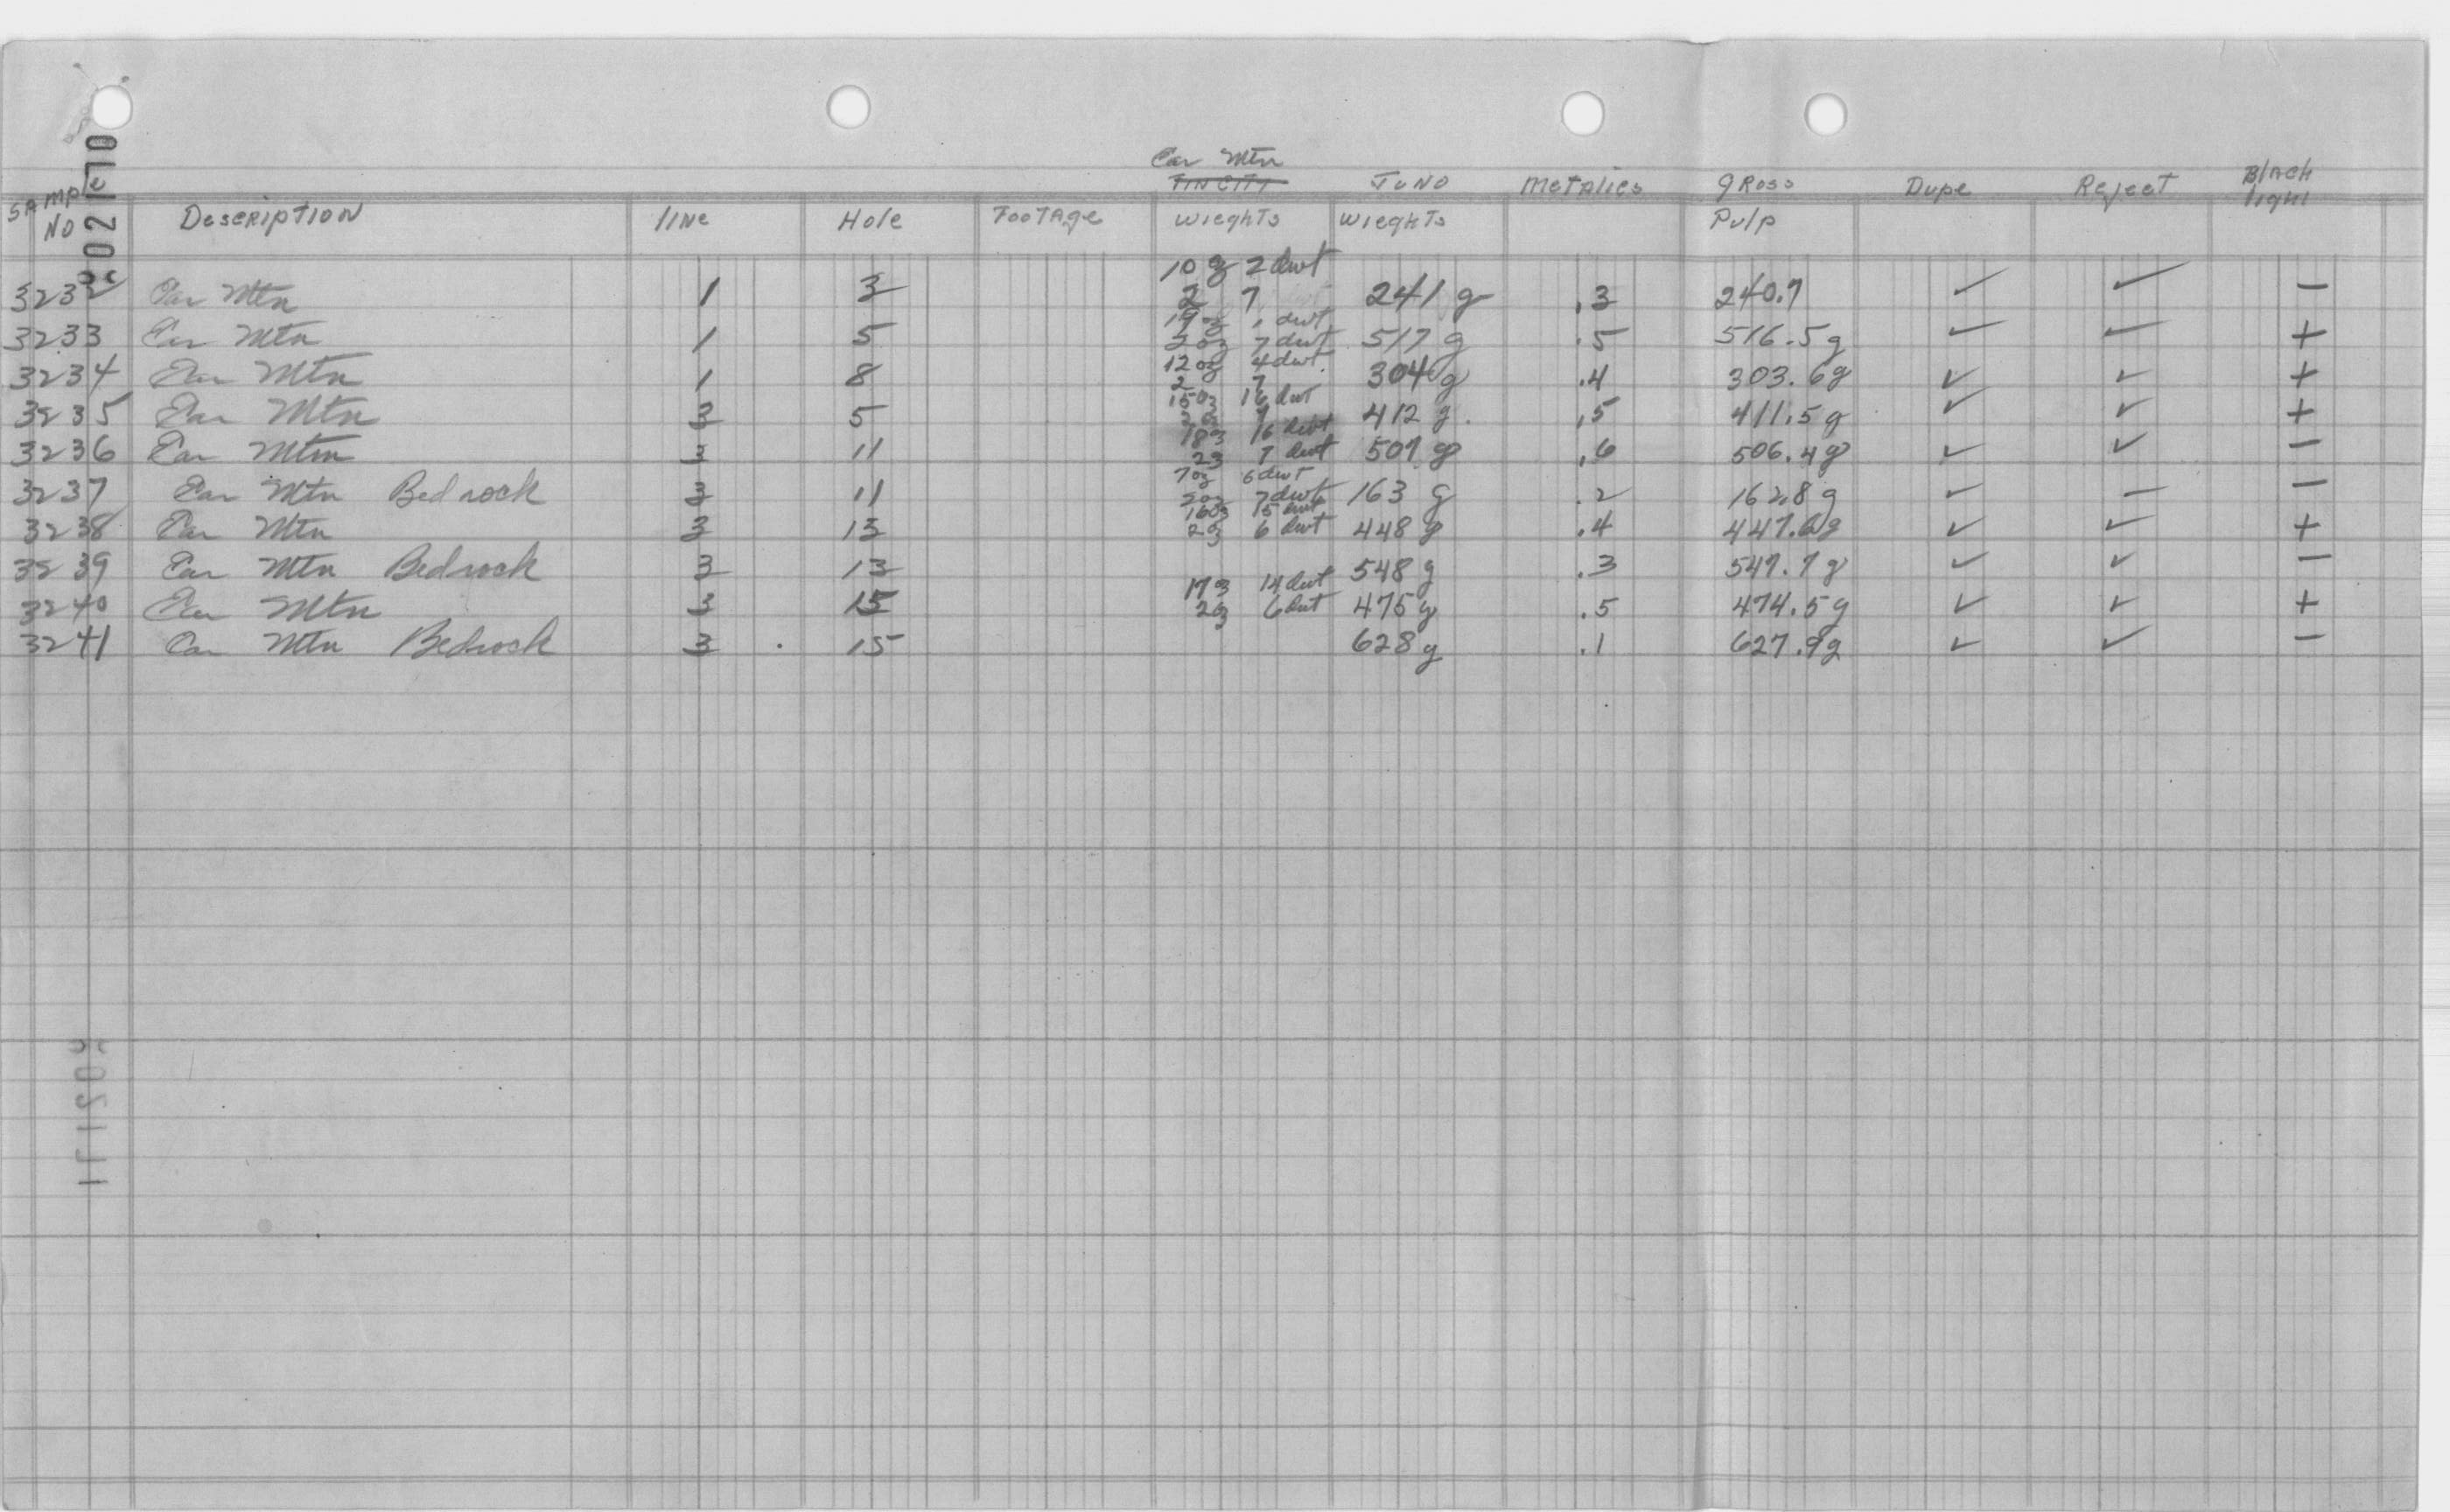 02170
Ear Mtn
SAmple TIN CITY JUNO Metalics gRoss Dupe Reject BlAck light
NO Description line Hole FooTAge wieghts wieghts Pulp
10 oz 2 dwt
3232 Ear Mtn 1 3 2 7 241 g .3 240.7 ✓ ✓ —
19 oz 1 dwt
3233 Ear Mtn 1 5 2 oz 7 dwt 517 g .5 516.5 g ✓ ✓ +
12 oz 4 dwt
3234 Ear Mtn 1 8 2 7 304 g .4 303.6 g ✓ ✓ +
15 oz 16 dwt
3235 Ear Mtn 3 5 2 oz 7 412 g. .5 411.5 g ✓ ✓ +
18 oz 16 dwt
3236 Ear Mtn 3 11 2 oz 7 dwt 507 g .6 506.4 g ✓ ✓ —
7 oz 6 dwt
3237 Ear Mtn Bedrock 3 11 2 oz 7 dwt 163 g .2 162.8 g ✓ — —
16 oz 15 dwt
3238 Ear Mtn 3 13 2 oz 6 dwt 448 g .4 447.6 g ✓ ✓ +
3239 Ear Mtn Bedrock 3 13 548 g .3 547.7 g ✓ ✓ —
17 oz 14 dwt
3240 Ear Mtn 3 15 2 oz 6 dwt 475 g .5 474.5 g ✓ ✓ +
3241 Ear Mtn Bedrock 3 15 628 g .1 627.9 g ✓ ✓ —